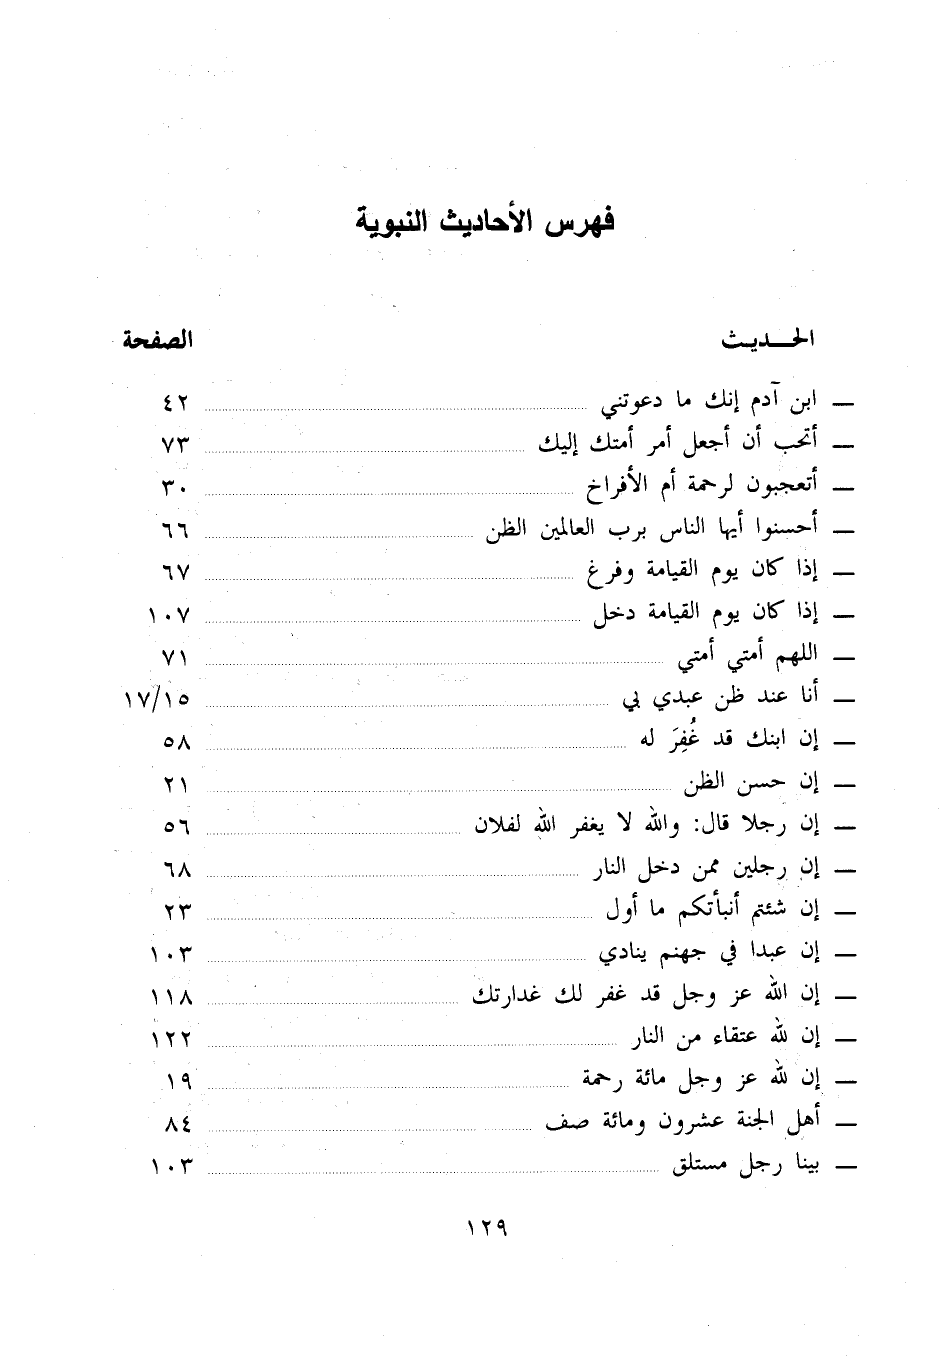 فهرس الأحاديث النبوية
الحـــديث الصفحة
— ابن آدم إنك ما دعوتني ٤٢
— أتحب أن أجعل أمر أمتك إليك ٧٣
— أتعجبون لرحمة أم الأفراخ ٣٠
— أحسنوا أيها الناس برب العالمين الظن ٦٦
— إذا كان يوم القيامة وفرغ ٦٧
— إذا كان يوم القيامة دخل ١٠٧
— اللهم أمتي أمتي ٧١
— أنا عند ظن عبدي بي ١٧/١٥
— إن ابنك قد غُفِرَ له ٥٨
— إن حسن الظن ٢١
— إن رجلا قال: والله لا يغفر الله لفلان ٥٦
— إن رجلين ممن دخل النار ٦٨
— إن شئتم أنبأتكم ما أول ٢٣
— إن عبدا في جهنم ينادي ١٠٣
— إن الله عز وجل قد غفر لك غدارتك ١١٨
— إن لله عتقاء من النار ١٢٢
— إن لله عز وجل مائة رحمة ١٩
— أهل الجنة عشرون ومائة صف ٨٤
— بينا رجل مستلق ١٠٣
١٢٩